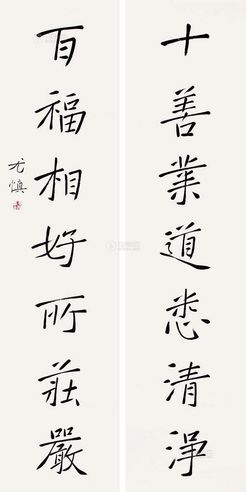 十善業道悉清淨
百福相好所莊嚴
尤慎